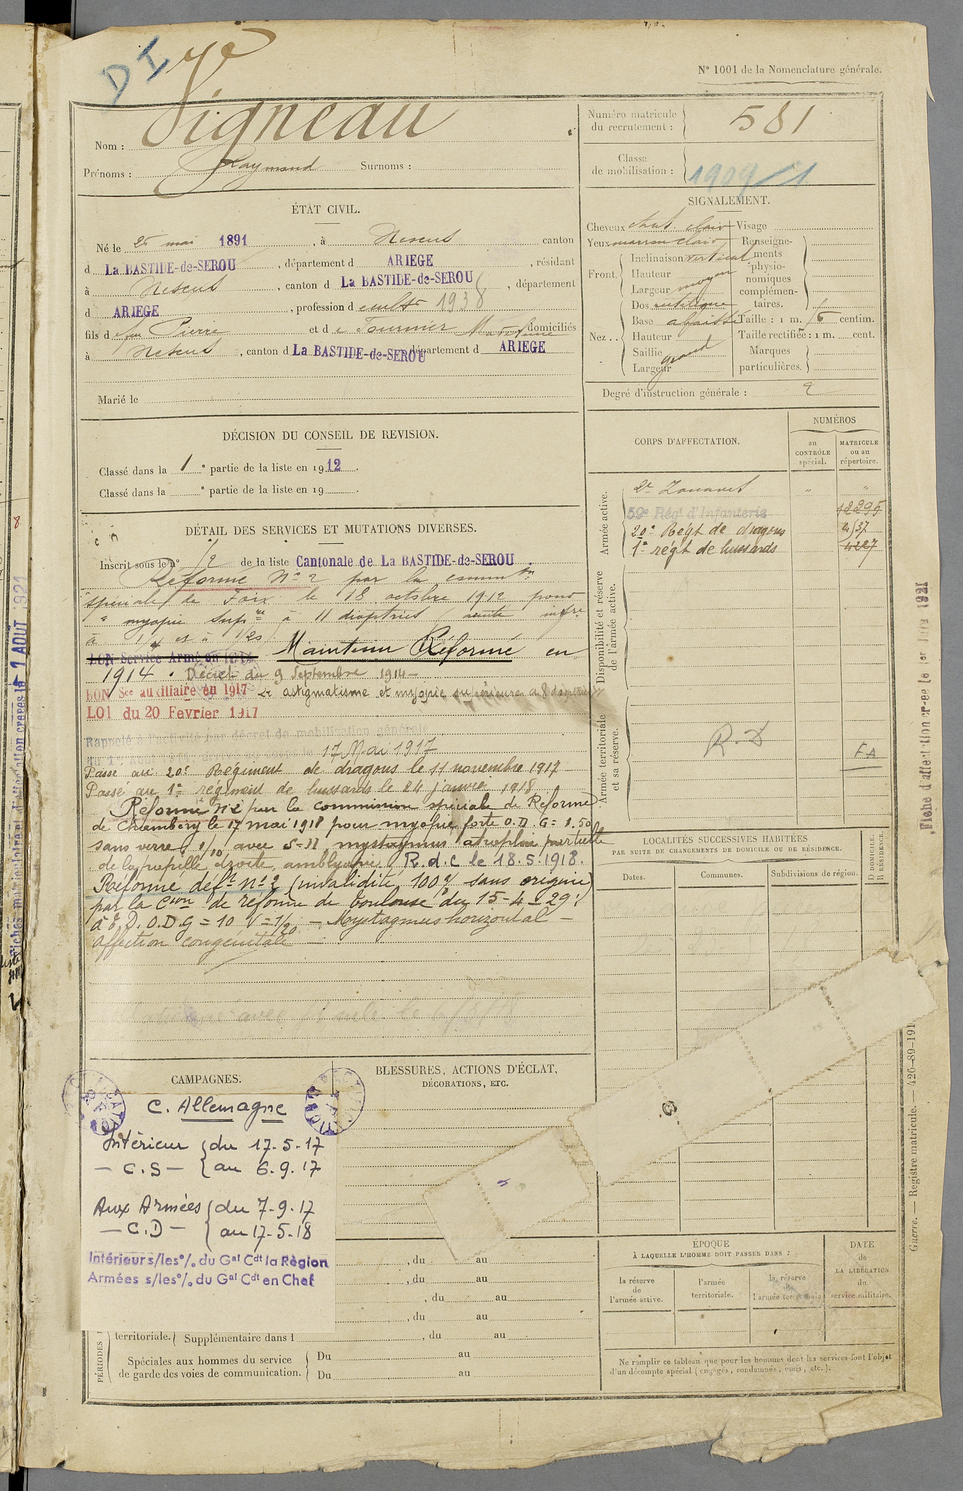 DI
N° 1001 de la Nomenclature générale.
Nom : Vigneau
Prénoms : Raymond Surnoms :
Numéro matricule du recrutement : 581
Classe de mobilisation : 1909/1
ÉTAT CIVIL.
Né le 25 mai 1891, à Nescus canton
d La BASTIDE-de-SEROU, département d ARIEGE, résidant
à Nescus, canton d La BASTIDE-de-SEROU, département
d ARIEGE, profession d cultr 1938
fils d feu Pierre et d e Fournier domiciliés
à Nescus, canton d La BASTIDE-de-SEROU département d ARIEGE
Marié le
SIGNALEMENT.
Cheveux chat. clair Visage
Yeux marron clair Renseigne-
ments
physio-
nomiques
complémen-
taires.
Front. Inclinaison vertical
Hauteur
Largeur moyen
Nez... Dos rectiligne
Base abaissé Taille : 1 m. centim.
Hauteur Taille rectifiée : 1 m. cent.
Saillie Marques
Largeur grand particulières.
Degré d'instruction générale : 2
DÉCISION DU CONSEIL DE REVISION.
Classé dans la 1e partie de la liste en 1912.
Classé dans la e partie de la liste en 19
CORPS D'AFFECTATION.
NUMÉROS
au CONTRÔLE spécial.
MATRICULE ou au répertoire.
Armée active.
2e Zouaves " "
59e Régt d'Infanterie 12295
20e Régt de dragons 4/37
1er régt de hussards 4227
Disponibilité et réserve de l'armée active.
Armée territoriale et sa réserve.
R.D FA
DÉTAIL DES SERVICES ET MUTATIONS DIVERSES.
Inscrit sous le n° 12 de la liste Cantonale de La BASTIDE-de-SEROU
Réformé N° 2 par la commton
spéciale de Foix le 18 octobre 1912 pour
" myopie supre à 11 dioptries
BON Service Armé en 1914 Maintenu Réformé en
1914. Décret du 9 Septembre 1914
BON Sce auxiliaire en 1917 astigmatisme et myopie
LOI du 20 Fevrier 1917
Rappelé à l'activité par décret de mobilisation générale
17 Mai 1917
Passé au 20e Régiment de dragons le 11 novembre 1917
Passé au 1er régiment de hussards le 24 janvier 1918
Réformé N°2 par la commission spéciale de Réforme
de Chambéry le 17 mai 1918 pour myopie forte O.D. G = 8.50
sans verre 1/10 avec nystagmus atrophie partielle
de la papille droite, amblyopie. R.d.C le 18.5.1918.
Réformé déft n° 2 (invalidité 100% sans origine)
par la Cion de réforme de Toulouse du 15-4-29.
O.D.G = 10 V = 1/20 — Nystagmus horizontal —
affection congénitale
LOCALITÉS SUCCESSIVES HABITÉES
PAR SUITE DE CHANGEMENTS DE DOMICILE OU DE RÉSIDENCE.
Dates. Communes. Subdivisions de région. D DOMICILE. R RÉSIDENCE.
CAMPAGNES.
C. Allemagne
Intérieur du 17-5-17
— C.S — au 6.9.17
Aux Armées du 7-9-17
— C.D — au 17-5-18
Intérieur s/les o/. du Gal Cdt la Région
Armées s/les o/. du Gal Cdt en Chef
BLESSURES, ACTIONS D'ÉCLAT,
DÉCORATIONS, ETC.
, du au
, du au
, du au
, du au
territoriale. Supplémentaire dans l , du au
PÉRIODES
Spéciales aux hommes du service
de garde des voies de communication.
Du au
Du au
ÉPOQUE
À LAQUELLE L'HOMME DOIT PASSER DANS :
la réserve de l'armée active.
l'armée territoriale.
la réserve de l'armée territoriale
DATE
de
LA LIBÉRATION
du
service militaire.
Ne remplir ce tableau que pour les hommes dont les services font l'objet
d'un décompte spécial (engagés, condamnés, omis, etc.).
Guerre. — Registre matricule. — 426-89-191